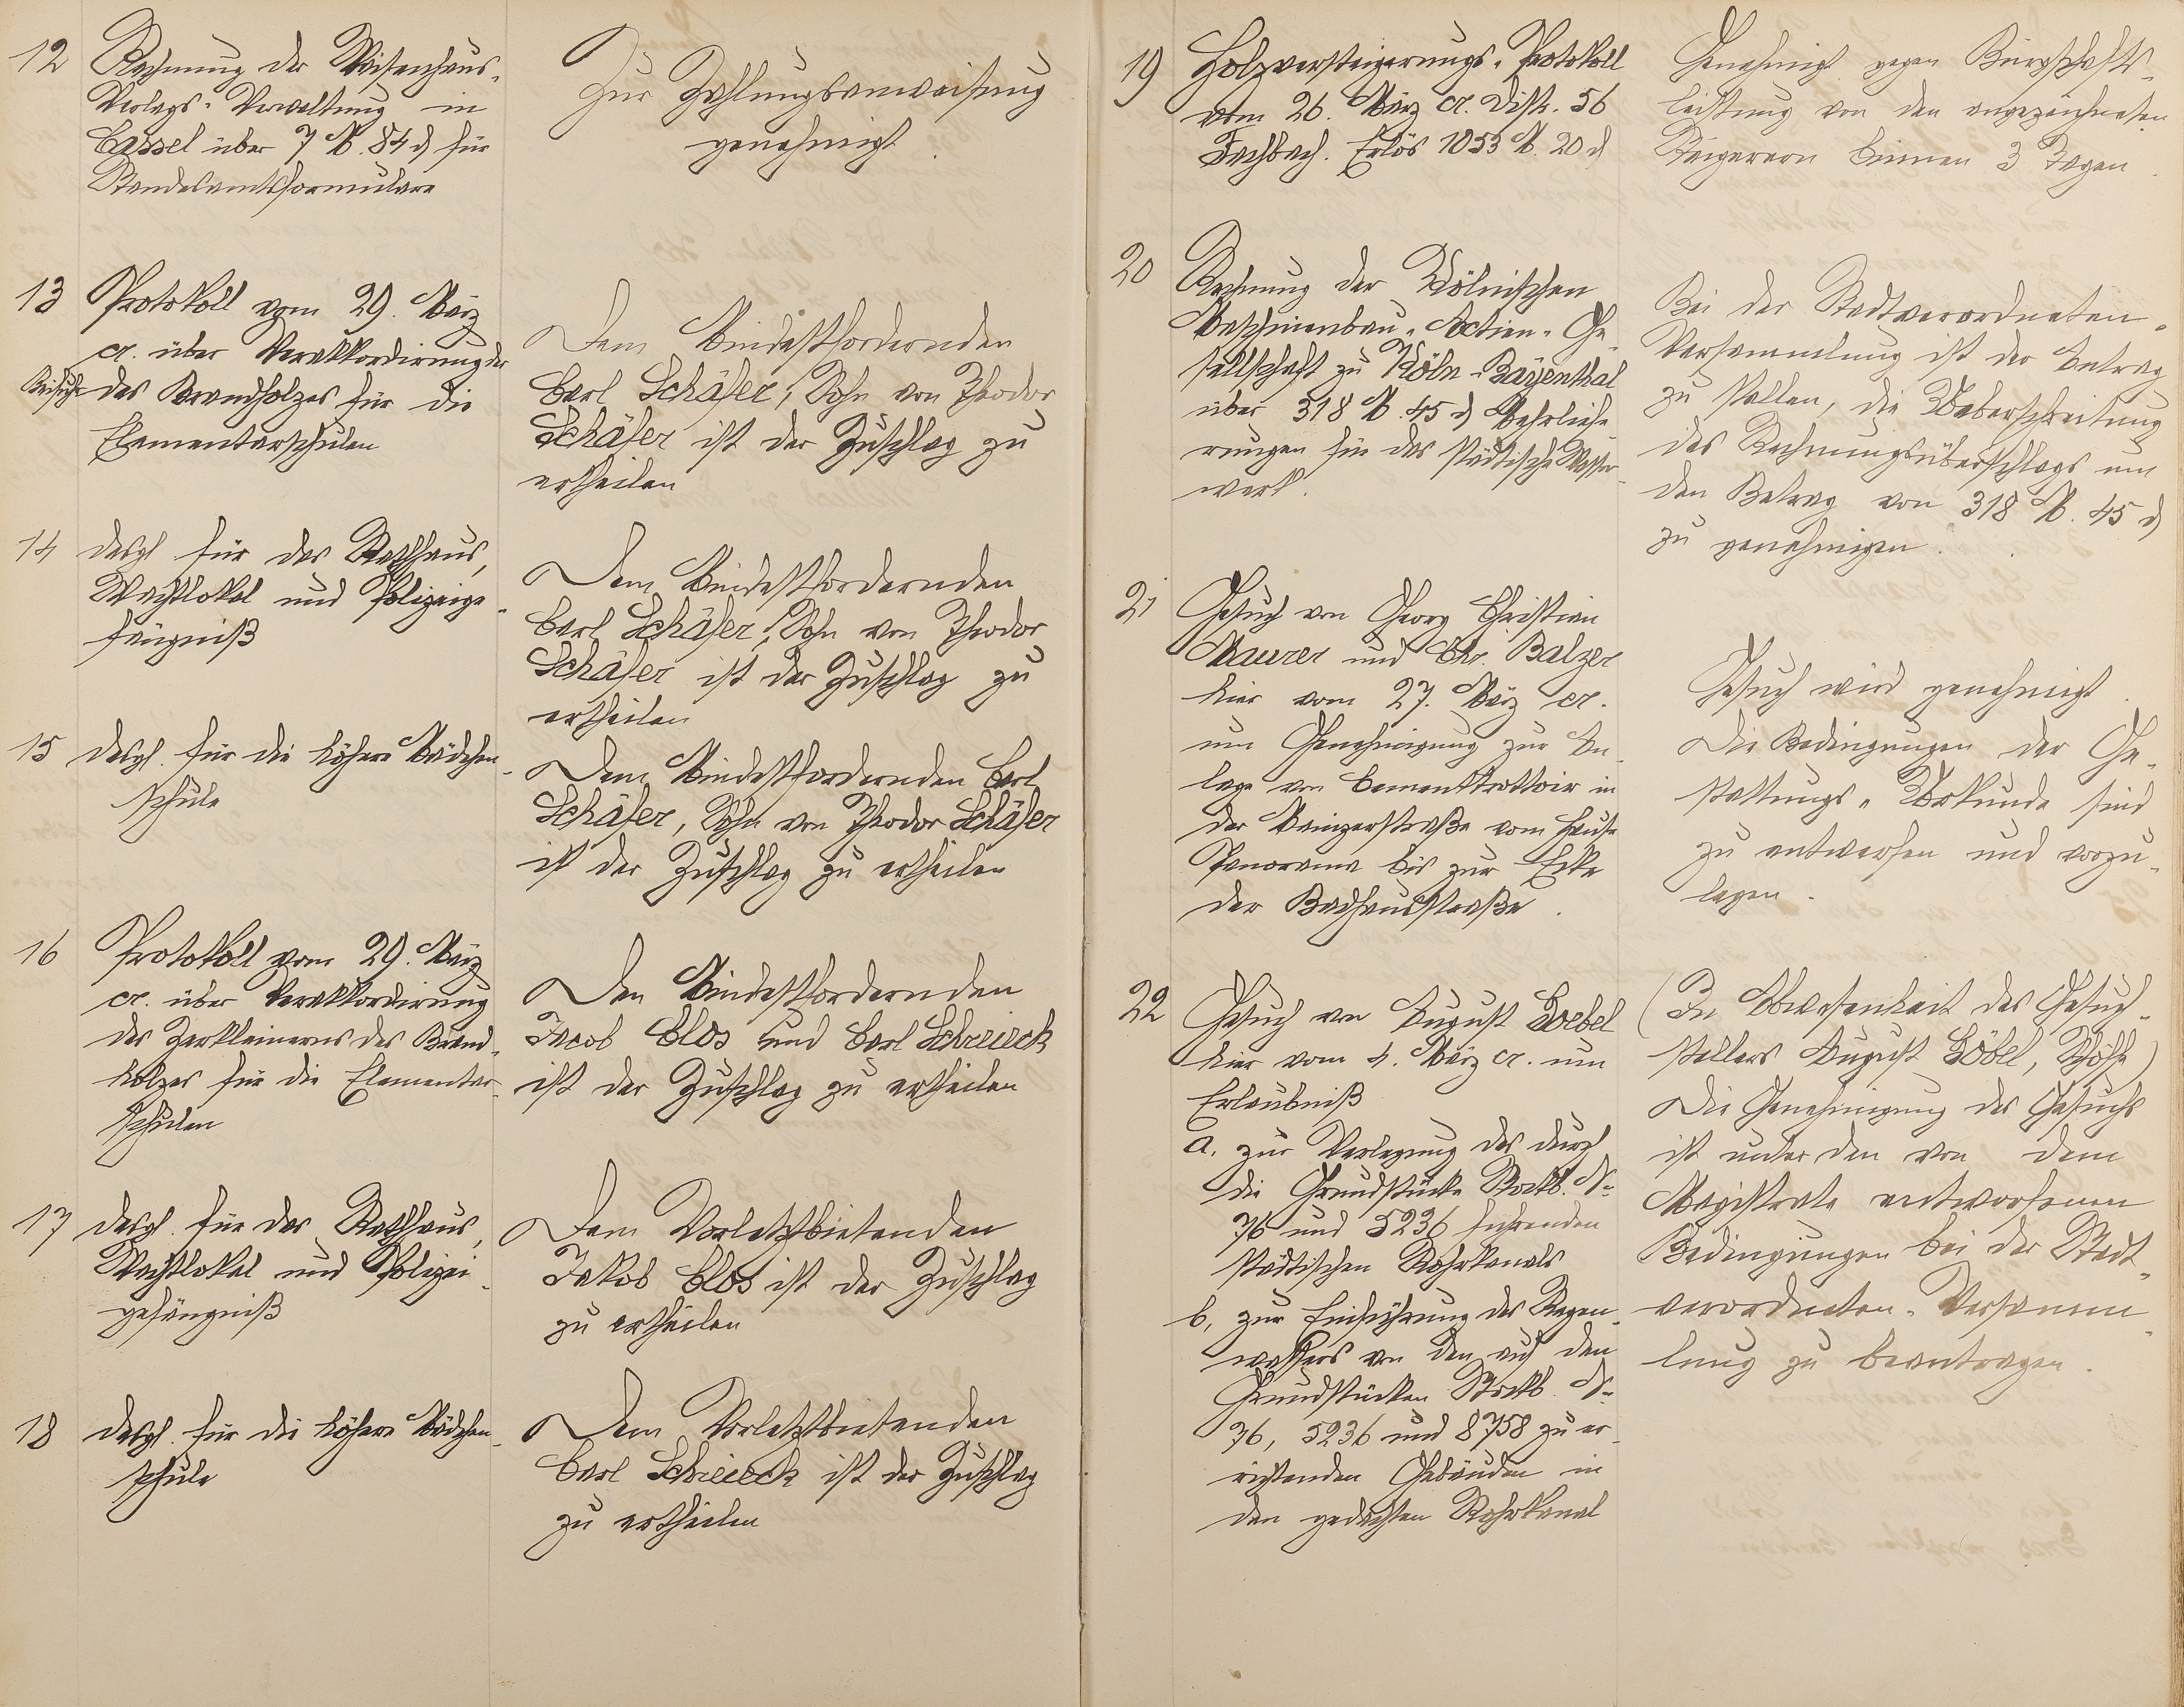 12
Rechnung der Waisenhaus-
Verlags-Verwaltung in
Cassel über 7 M. 84 d für
Standesamtsformulare
Zur Zahlungsanweisung
genehmigt.
13
Protokoll vom 29. März
cr. über Verakkordirung der
Beifuhr des Brandholzes für die
Elementarschulen
Dem Mindestfordernden
Carl Schäfer, Sohn von Theodor
Schäfer ist der Zuschlag zu
ertheilen
14
desgl. für das Rathhaus,
Wachtlokal und Polizeige-
fängniß
Dem Mindestfordernden
Carl Schäfer, Sohn von Theodor
Schäfer ist der Zuschlag zu
ertheilen
15
desgl. für die höhere Mädchen-
schule
Dem Mindestfordernden Carl
Schäfer, Sohn von Theodor Schäfer
ist der Zuschlag zu ertheilen
16
Protokoll vom 29. März
cr. über Verakkordirung
des Zerkleinerns des Brand-
holzes für die Elementar-
schulen
Den Mindestfordernden
Jacob Clos und Carl Schreieck
ist der Zuschlag zu ertheilen
17
desgl. für das Rathhaus,
Wachtlokal und Polizei-
gefängniß
Dem Vorletztbietenden
Jakob Clos ist der Zuschlag
zu ertheilen
18
desgl. für die höhere Mädchen-
schule
Dem Vorletztbietenden
Carl Schreieck ist der Zuschlag
zu ertheilen
19
Holzversteigerungs-Protokoll
vom 26. März cr. Distr. 56
Fachbach. Erlös 1053 M. 20 d
Genehmigt gegen Bürgschafts-
leistung von den angezeichneten
Steigerern binnen 3 Tagen.
20
Rechnung der Kölnischen
Maschinenbau-Actien-Ge-
sellschaft zu Köln-Bayenthal
über 318 M. 45 d Mehrliefe-
rungen für das städtische Wasser-
werk.
Bei der Stadtverordneten-
Versammlung ist der Antrag
zu stellen, die Ueberschreitung
des Rechnungsüberschlags um
den Betrag von 318 M. 45 d
zu genehmigen.
21
Gesuch von Georg Christian
Maurer und Chr. Balzer
hier vom 27. März cr.
um Genehmigung zur An-
lage von Cementtrottoir in
der Mainzerstraße vom Hause
Panorama bis zur Ecke
der Badhausstraße.
Gesuch wird genehmigt.
Die Bedingungen der Ge-
stattungs-Urkunde sind
zu entwerfen und vorzu-
legen.
22
Gesuch von August Goebel
hier vom 4. März cr. um
Erlaubniß
a. zur Verlegung des durch
die Grundstücke Stockb. No
76 und 5236 führenden
städtischen Rohrkanals
b, zur Einführung des Regen-
wassers von den auf den
Grundstücken Stockb. No
76, 5236 und 8758 zu er-
richtenden Gebäuden in
den gedachten Rohrkanal
(In Abwesenheit des Gesuch-
stellers August Göbel, Schöffe)
Die Genehmigung des Gesuchs
ist unter den von dem
Magistrate entworfenen
Bedingungen bei der Stadt-
verordneten-Versamm-
lung zu beantragen.